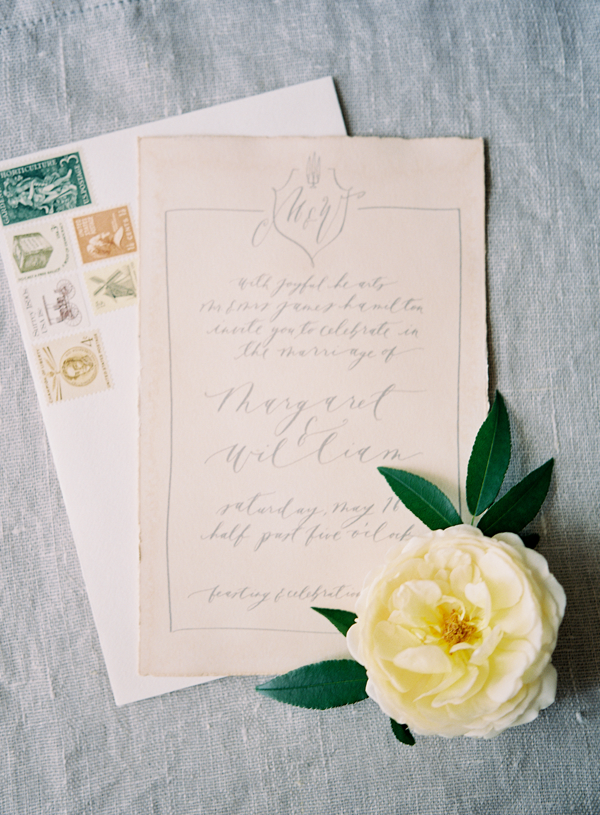 HORTICULTURE
3¢
M & W
with joyful hearts
mr & mrs james hamilton
invite you to celebrate in
the marriage of
Margaret
&
William
saturday, may
half past five o'clock
feasting & celebration